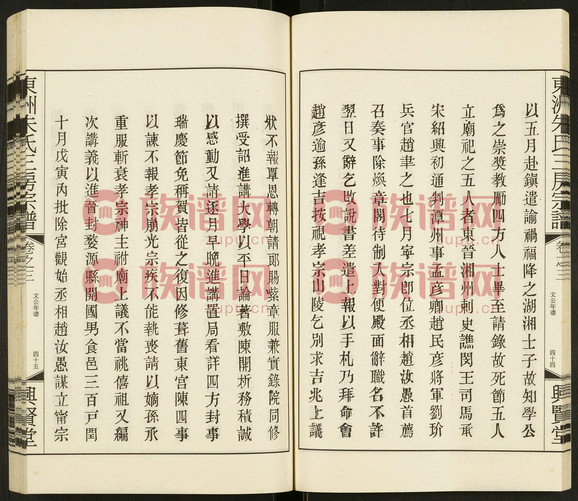 東洲朱氏三房宗譜
卷之三
文公年谱
四十四
興賢堂
以五月赴鎮遣諭禍福降之湖湘士子故知學公
為之崇奬教厲四方人士畢至請錄故死節五人
立廟祀之五人者東晉湘州刺史譙閔王司馬承
宋紹興初通判潭州事孟彥卿趙民彥將軍劉玠
兵官趙聿之也七月寧宗卽位丞相趙汝愚首薦
召奏事除煥章閣待制侍講辭不許
翌日又辭乞改說書差遣上報以手札乃拜命會
趙彥逾孫逢吉按視孝宗山陵乞別求吉兆上議
狀不報覃恩轉朝請郎賜紫章服兼實錄院同修
撰受詔進講大學以平日論著敷陳開析務積誠
以感動又請逐月早晚進講置局看詳四方封事
瑞慶節免稱賀皆從之復因修葺舊東宮陳四事
以諫不報孝宗崩光宗疾不能執喪請以嫡孫承
重服斬衰孝宗神主祔廟上議不當祧僖祖又編
次講義以進晉封婺源縣開國男食邑三百戶閏
十月戊寅丙批除宮觀始丞相趙汝愚謀立甯宗
東洲朱氏三房宗譜
卷之三
文公年谱
四十五
興賢堂
族谱网
zupu.cn
族谱网
zupu.cn